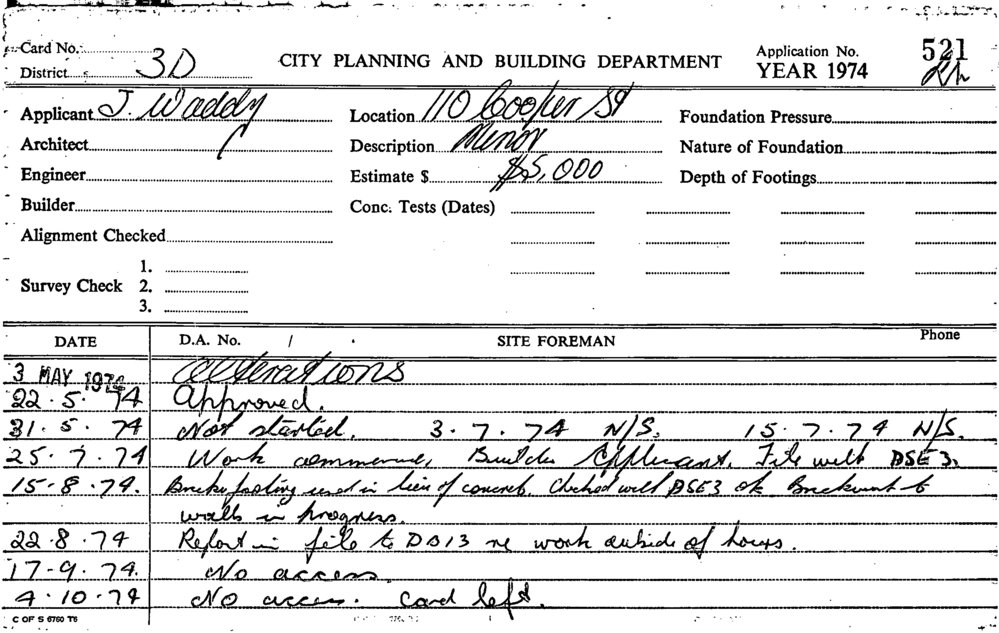 Card No.
District 3D
CITY PLANNING AND BUILDING DEPARTMENT
Application No. 521
YEAR 1974
Applicant J. Waddy
Location 110 Cooper St
Foundation Pressure
Architect
Description Minor
Nature of Foundation
Engineer
Estimate $ $5,000
Depth of Footings
Builder
Conc. Tests (Dates)
Alignment Checked
Survey Check 1.
2.
3.
DATE D.A. No. / SITE FOREMAN Phone
3 MAY 1974 Alterations
22.5.74 Approved.
31.5.74 Not started. 3.7.74 N/S. 15.7.74 N/S.
25.7.74 Work commenced, Builder Applicant. File with DSE3.
15.8.74. Bricks footing used in lieu of concrete. Checked with DSE3 ok. Brickwork to
walls in progress.
22.8.74 Report in file to DB13 re work outside of hours.
17-9.74. No access.
4.10.74 No access. Card left.
C OF S 6760 T6